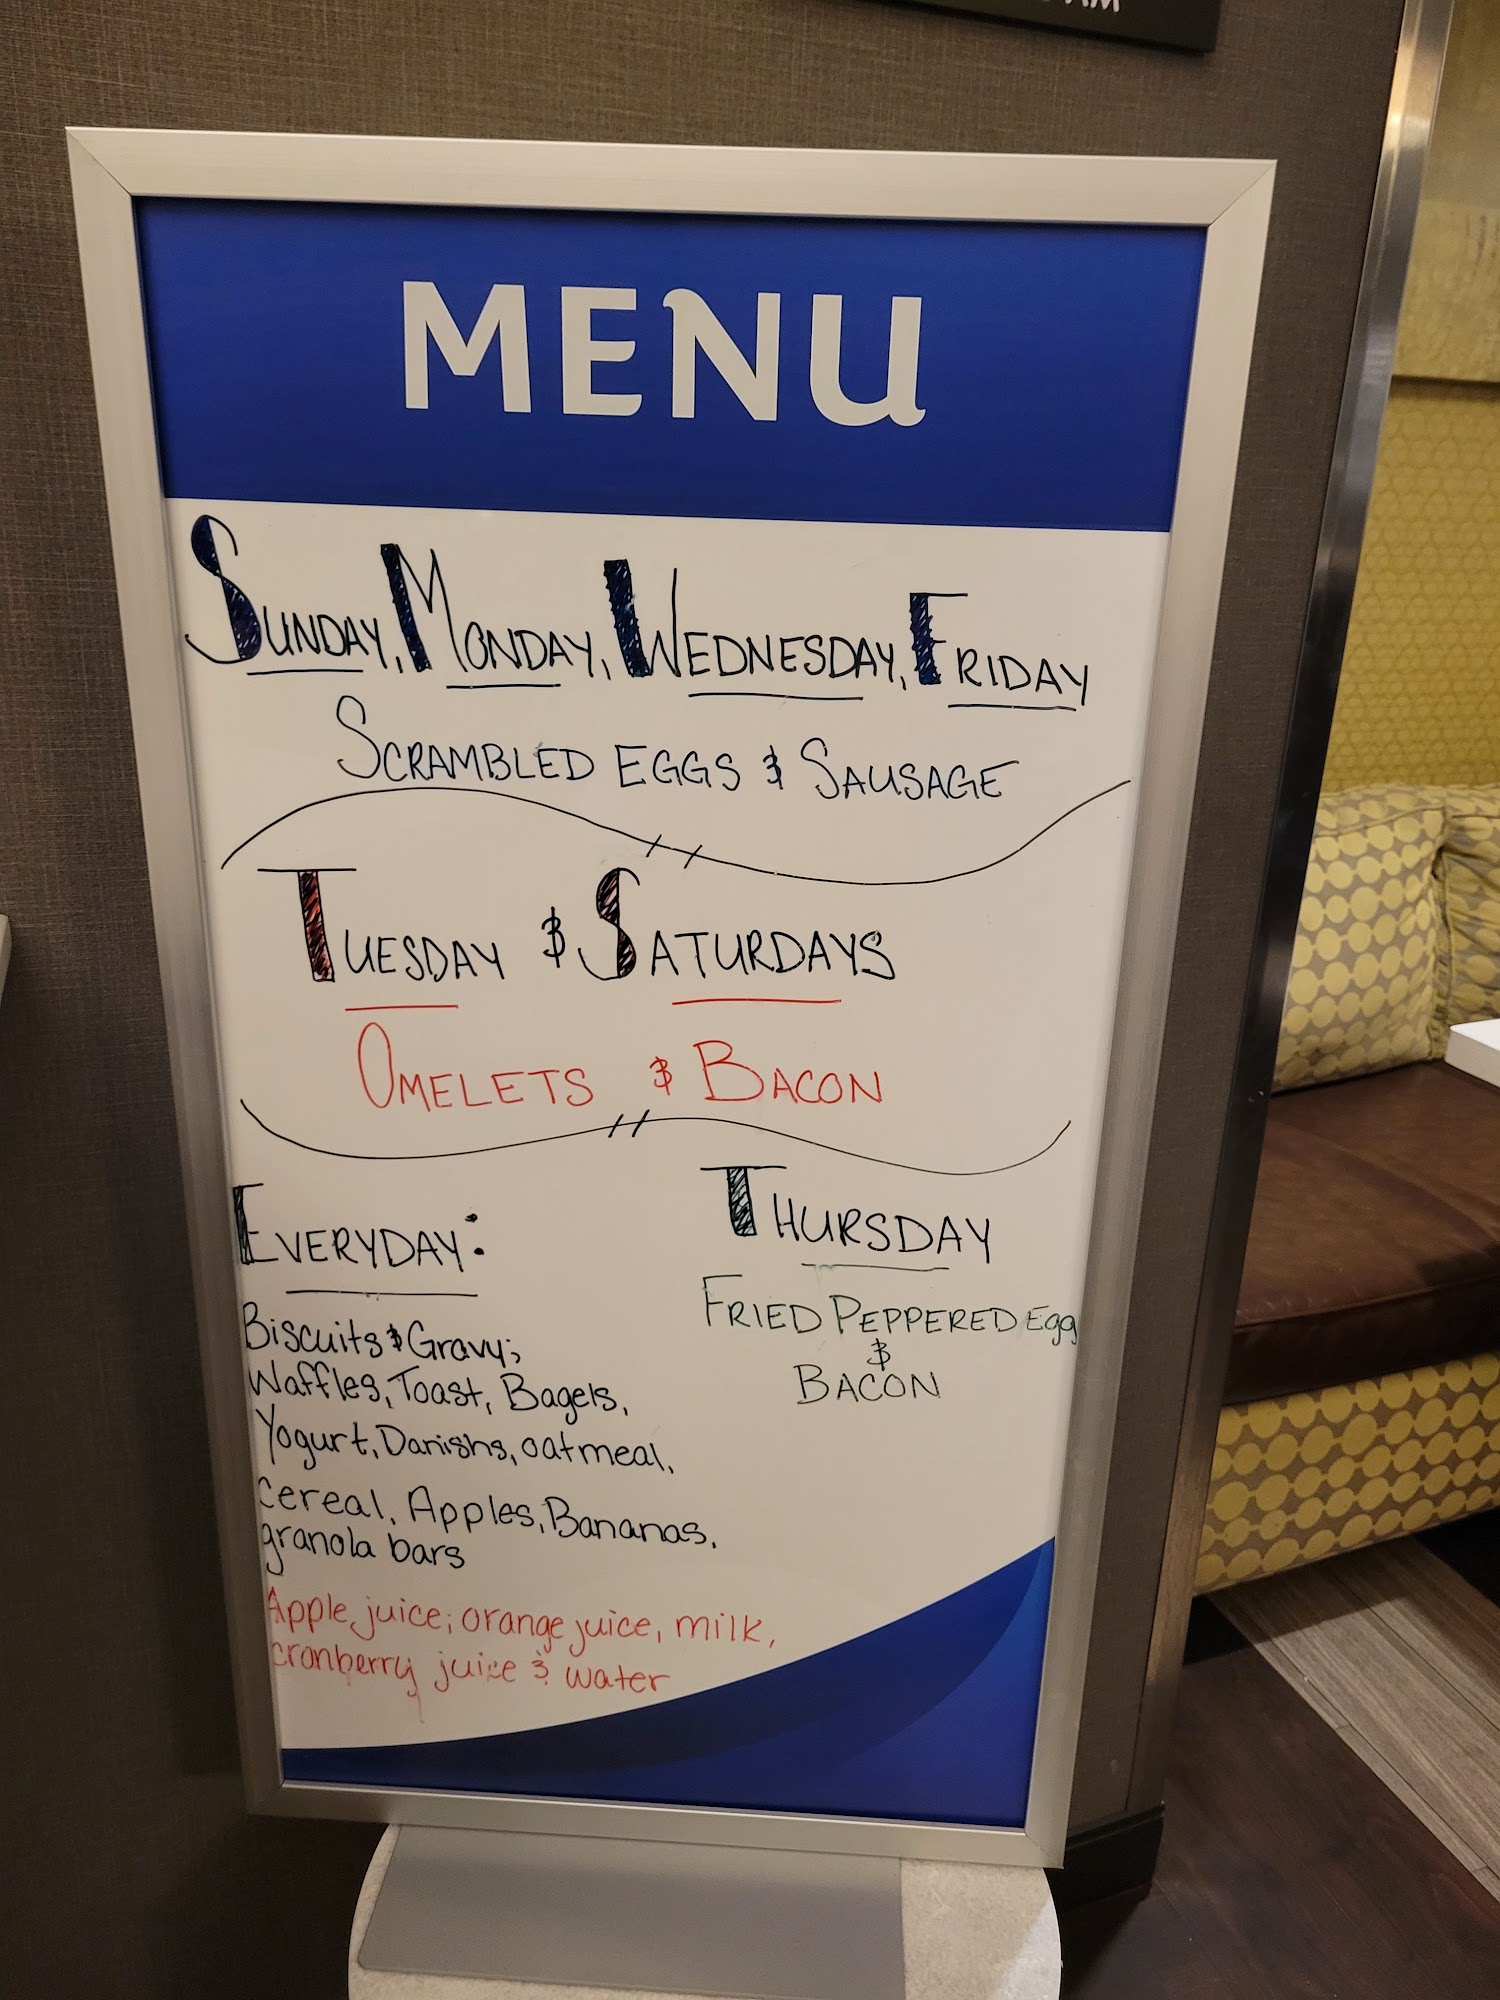 AM
MENU
SUNDAY, MONDAY, WEDNESDAY, FRIDAY
SCRAMBLED EGGS & SAUSAGE
TUESDAY & SATURDAYS
OMELETS & BACON
EVERYDAY:
Biscuits & Gravy;
Waffles, Toast, Bagels,
Yogurt, Danishs, oatmeal,
Cereal, Apples, Bananas,
granola bars
Apple juice; orange juice, milk,
cranberry juice & water
THURSDAY
FRIED PEPPERED Egg
&
BACON